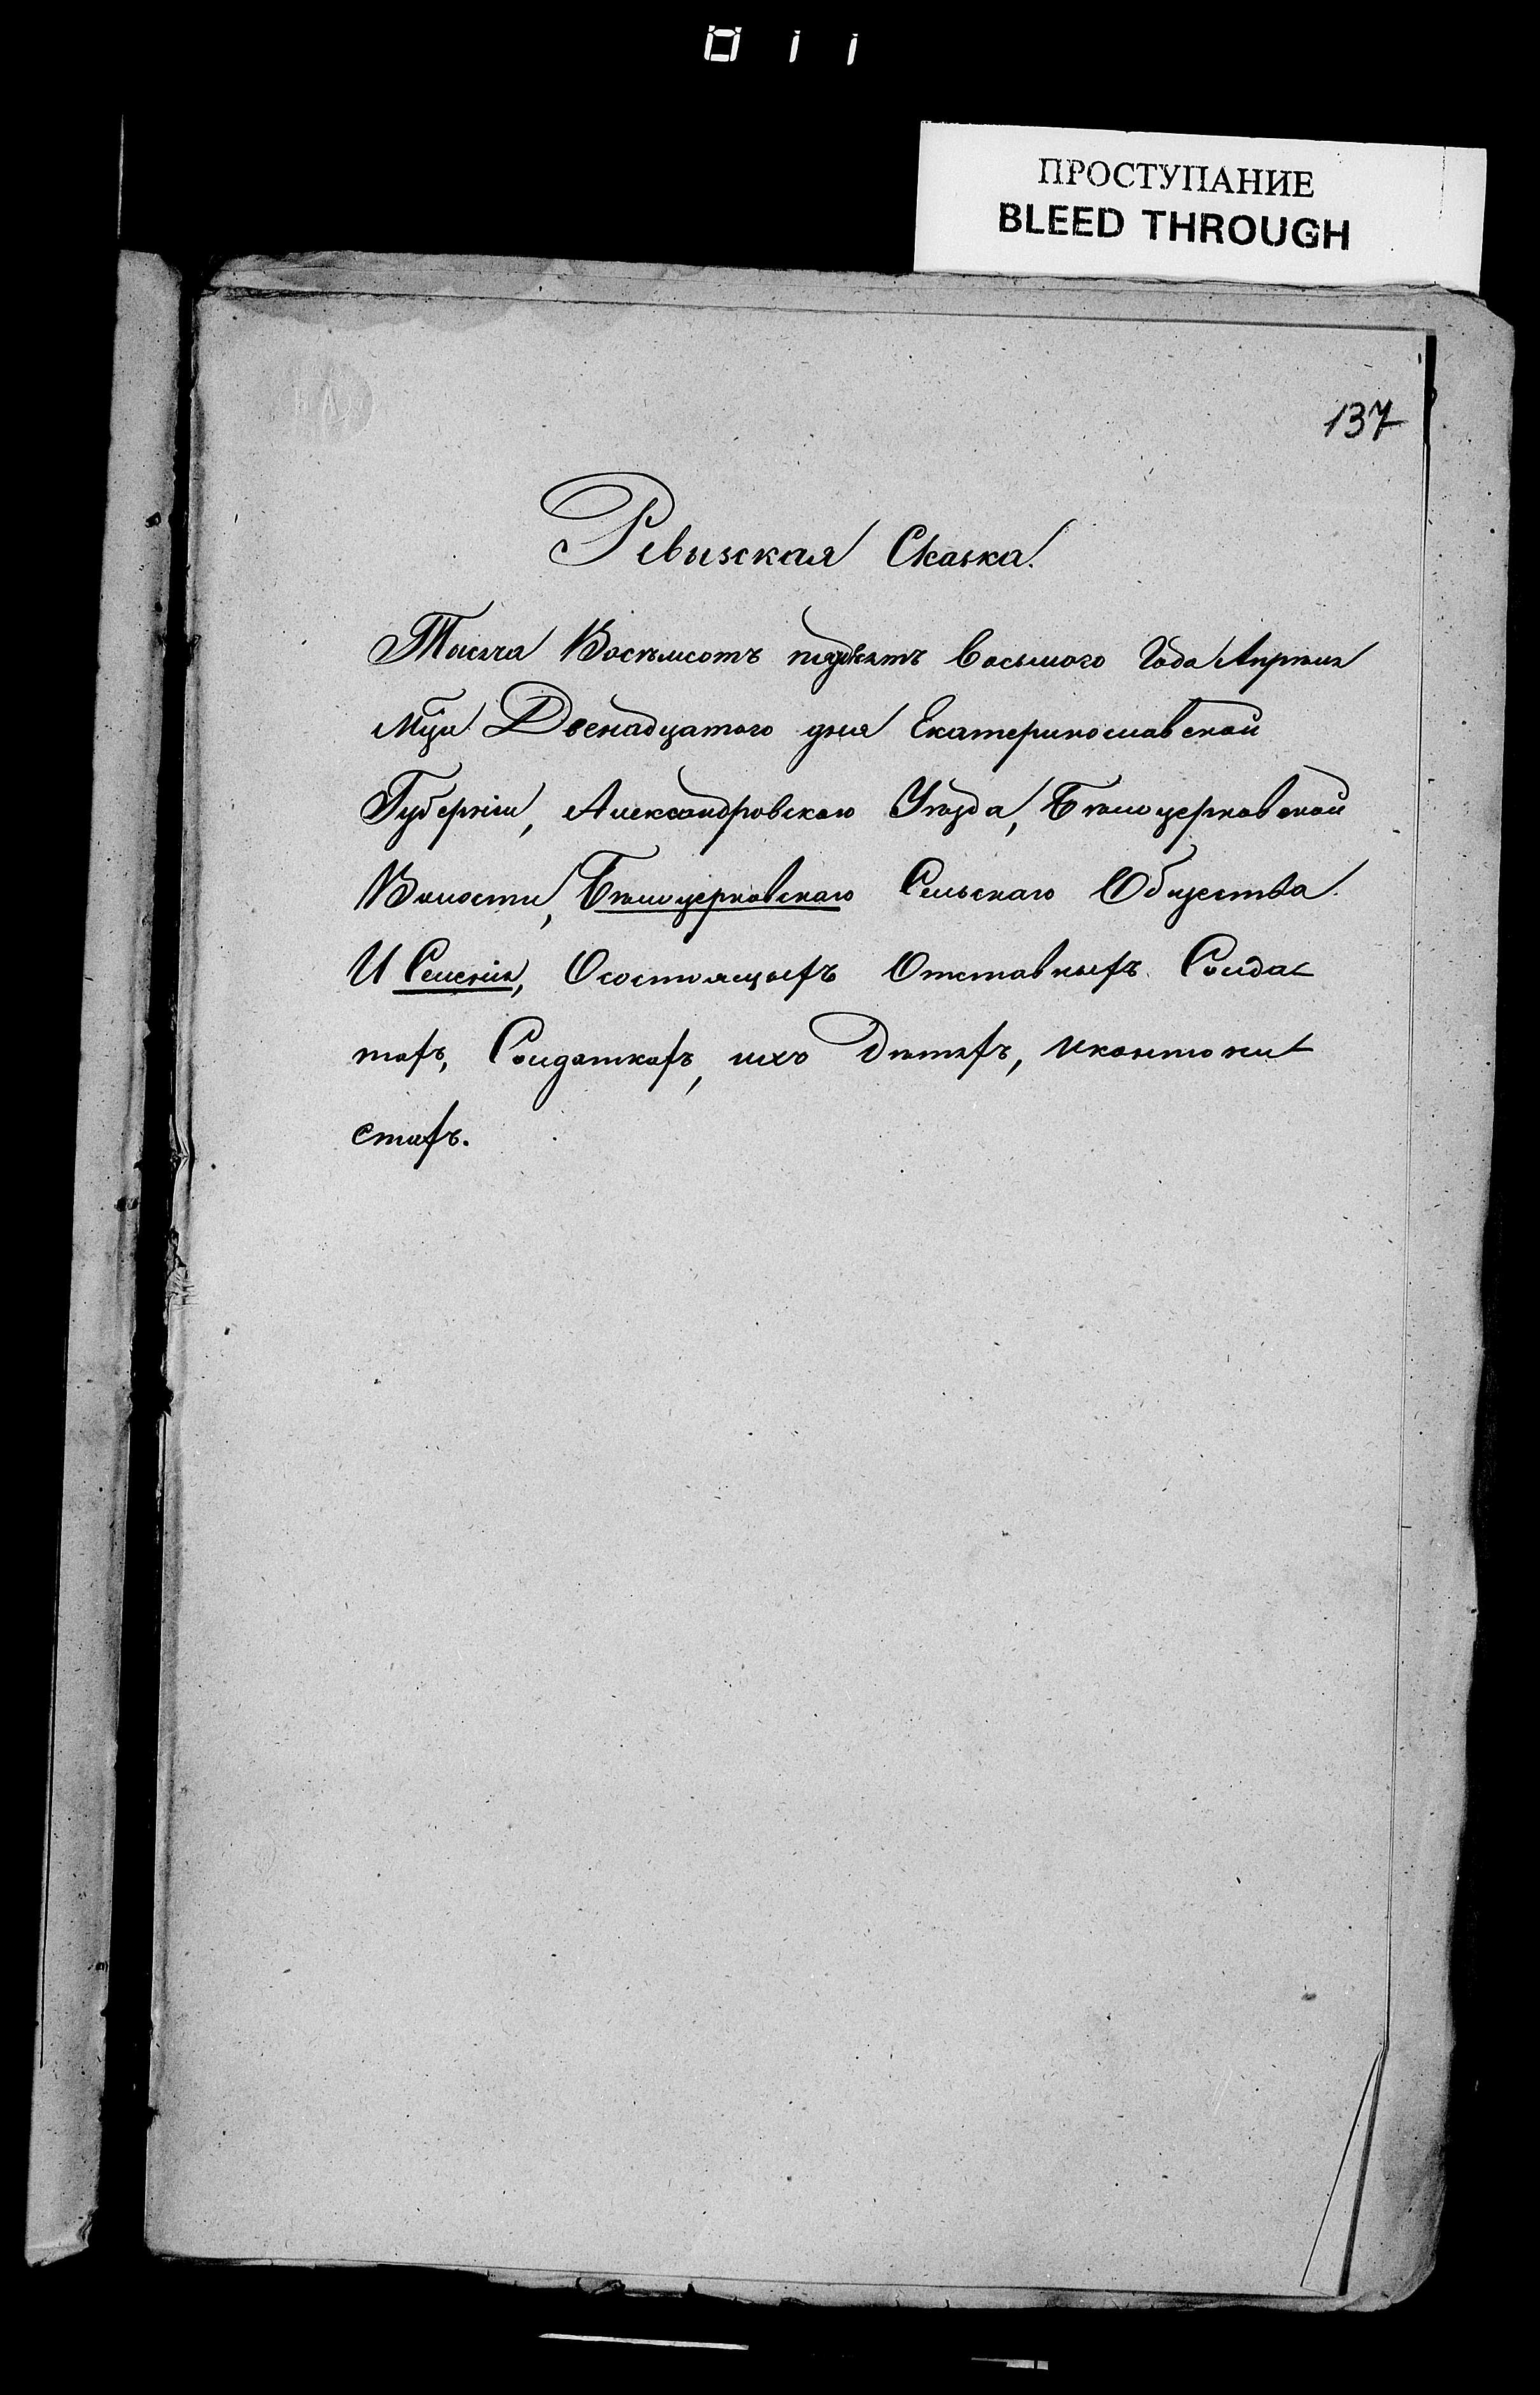 011
ПРОСТУПАНИЕ
BLEED THROUGH
137
Ревизская Сказка.
Тысяча Восемьсотъ пядесятъ восьмого Года Апреля
Мца Двенадцатого дня Екатеринославской
Губерніи, Александровского Уѣзда, Бѣлоцерковской
Волости, Бѣлоцерковскаго Сельскаго Общества
И Селенія, Осостоящыхъ Отставныхъ Солда
тахъ, Солдаткахъ, ихъ Дѣтяхъ, икантони
стахъ.